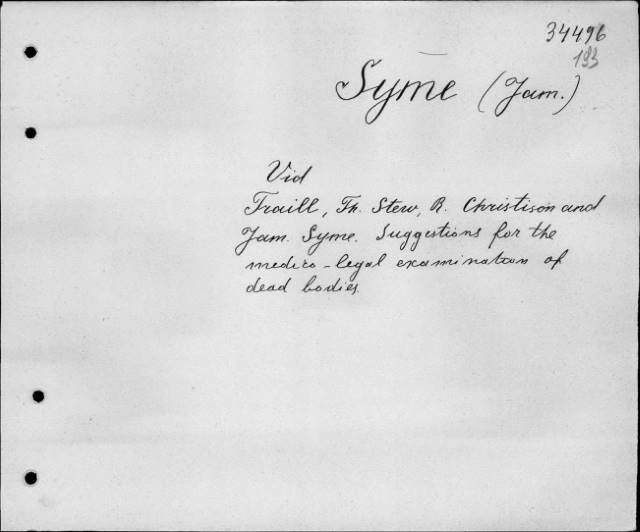 34496
193
Syme (Jam.)
Vid
Traill, Th. Stew, R. Christison and
Jam. Syme. Suggestions for the
medico-legal examination of
dead bodies